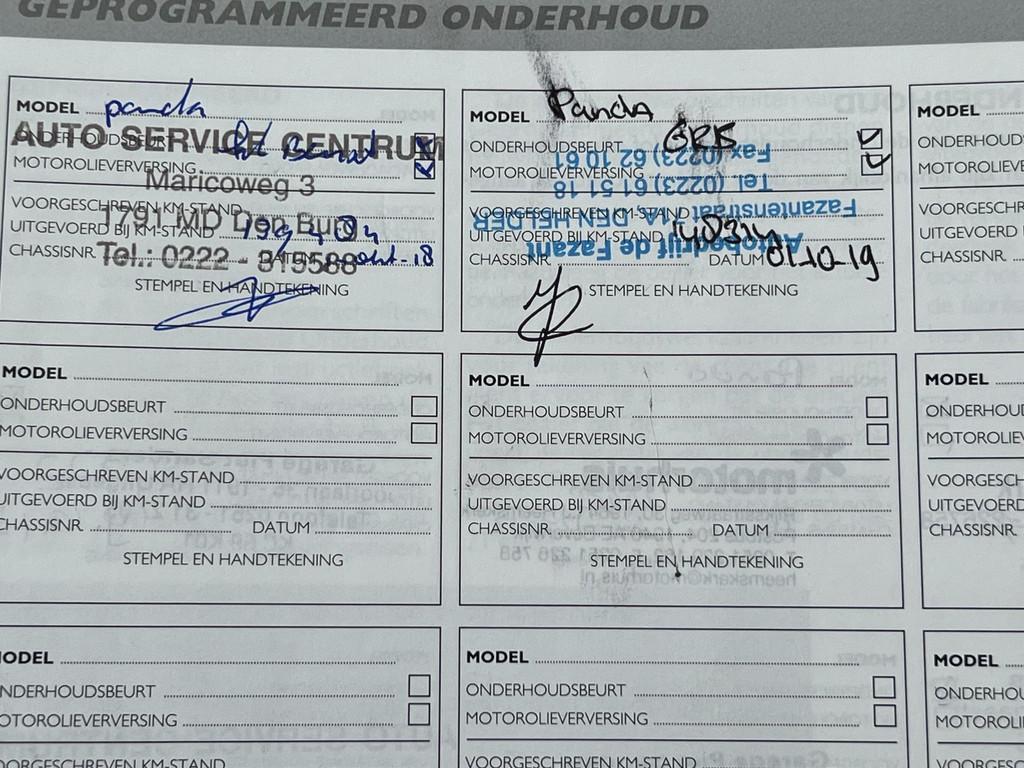 GEPROGRAMMEERD ONDERHOUD
MODEL panda
AUTO SERVICE CENTRUM
ONDERHOUDSBEURT
MOTOROLIEVERVERSING
Maricoweg 3
VOORGESCHREVEN KM-STAND
1791 MD Den Burg
UITGEVOERD BIJ KM-STAND
CHASSISNR. DATUM okt-18
Tel.: 0222 - 315588
STEMPEL EN HANDTEKENING
MODEL Panda
ONDERHOUDSBEURT GRB
Fax (0223) 62 10 61
MOTOROLIEVERVERSING
Tel. (0223) 61 51 18
VOORGESCHREVEN KM-STAND
Fazantenstraat DEN HELDER
UITGEVOERD BIJ KM-STAND
Autobedrijf de Fazant
CHASSISNR. DATUM 01-10-19
STEMPEL EN HANDTEKENING
MODEL
ONDERHOUDS
MOTOROLIEVE
VOORGESCHREV
UITGEVOERD
CHASSISNR.
MODEL
ONDERHOUDSBEURT
MOTOROLIEVERVERSING
VOORGESCHREVEN KM-STAND
UITGEVOERD BIJ KM-STAND
CHASSISNR. DATUM
STEMPEL EN HANDTEKENING
MODEL
ONDERHOUDSBEURT
MOTOROLIEVERVERSING
VOORGESCHREVEN KM-STAND
UITGEVOERD BIJ KM-STAND
CHASSISNR. DATUM
STEMPEL EN HANDTEKENING
MODEL
ONDERHOU
MOTOROLIEV
VOORGESCH
UITGEVOERD
CHASSISNR.
MODEL
ONDERHOUDSBEURT
MOTOROLIEVERVERSING
VOORGESCHREVEN KM-STAND
MODEL
ONDERHOUDSBEURT
MOTOROLIEVERVERSING
VOORGESCHREVEN KM-STAND
MODEL
ONDERHOU
MOTOROLI
VOORGESC